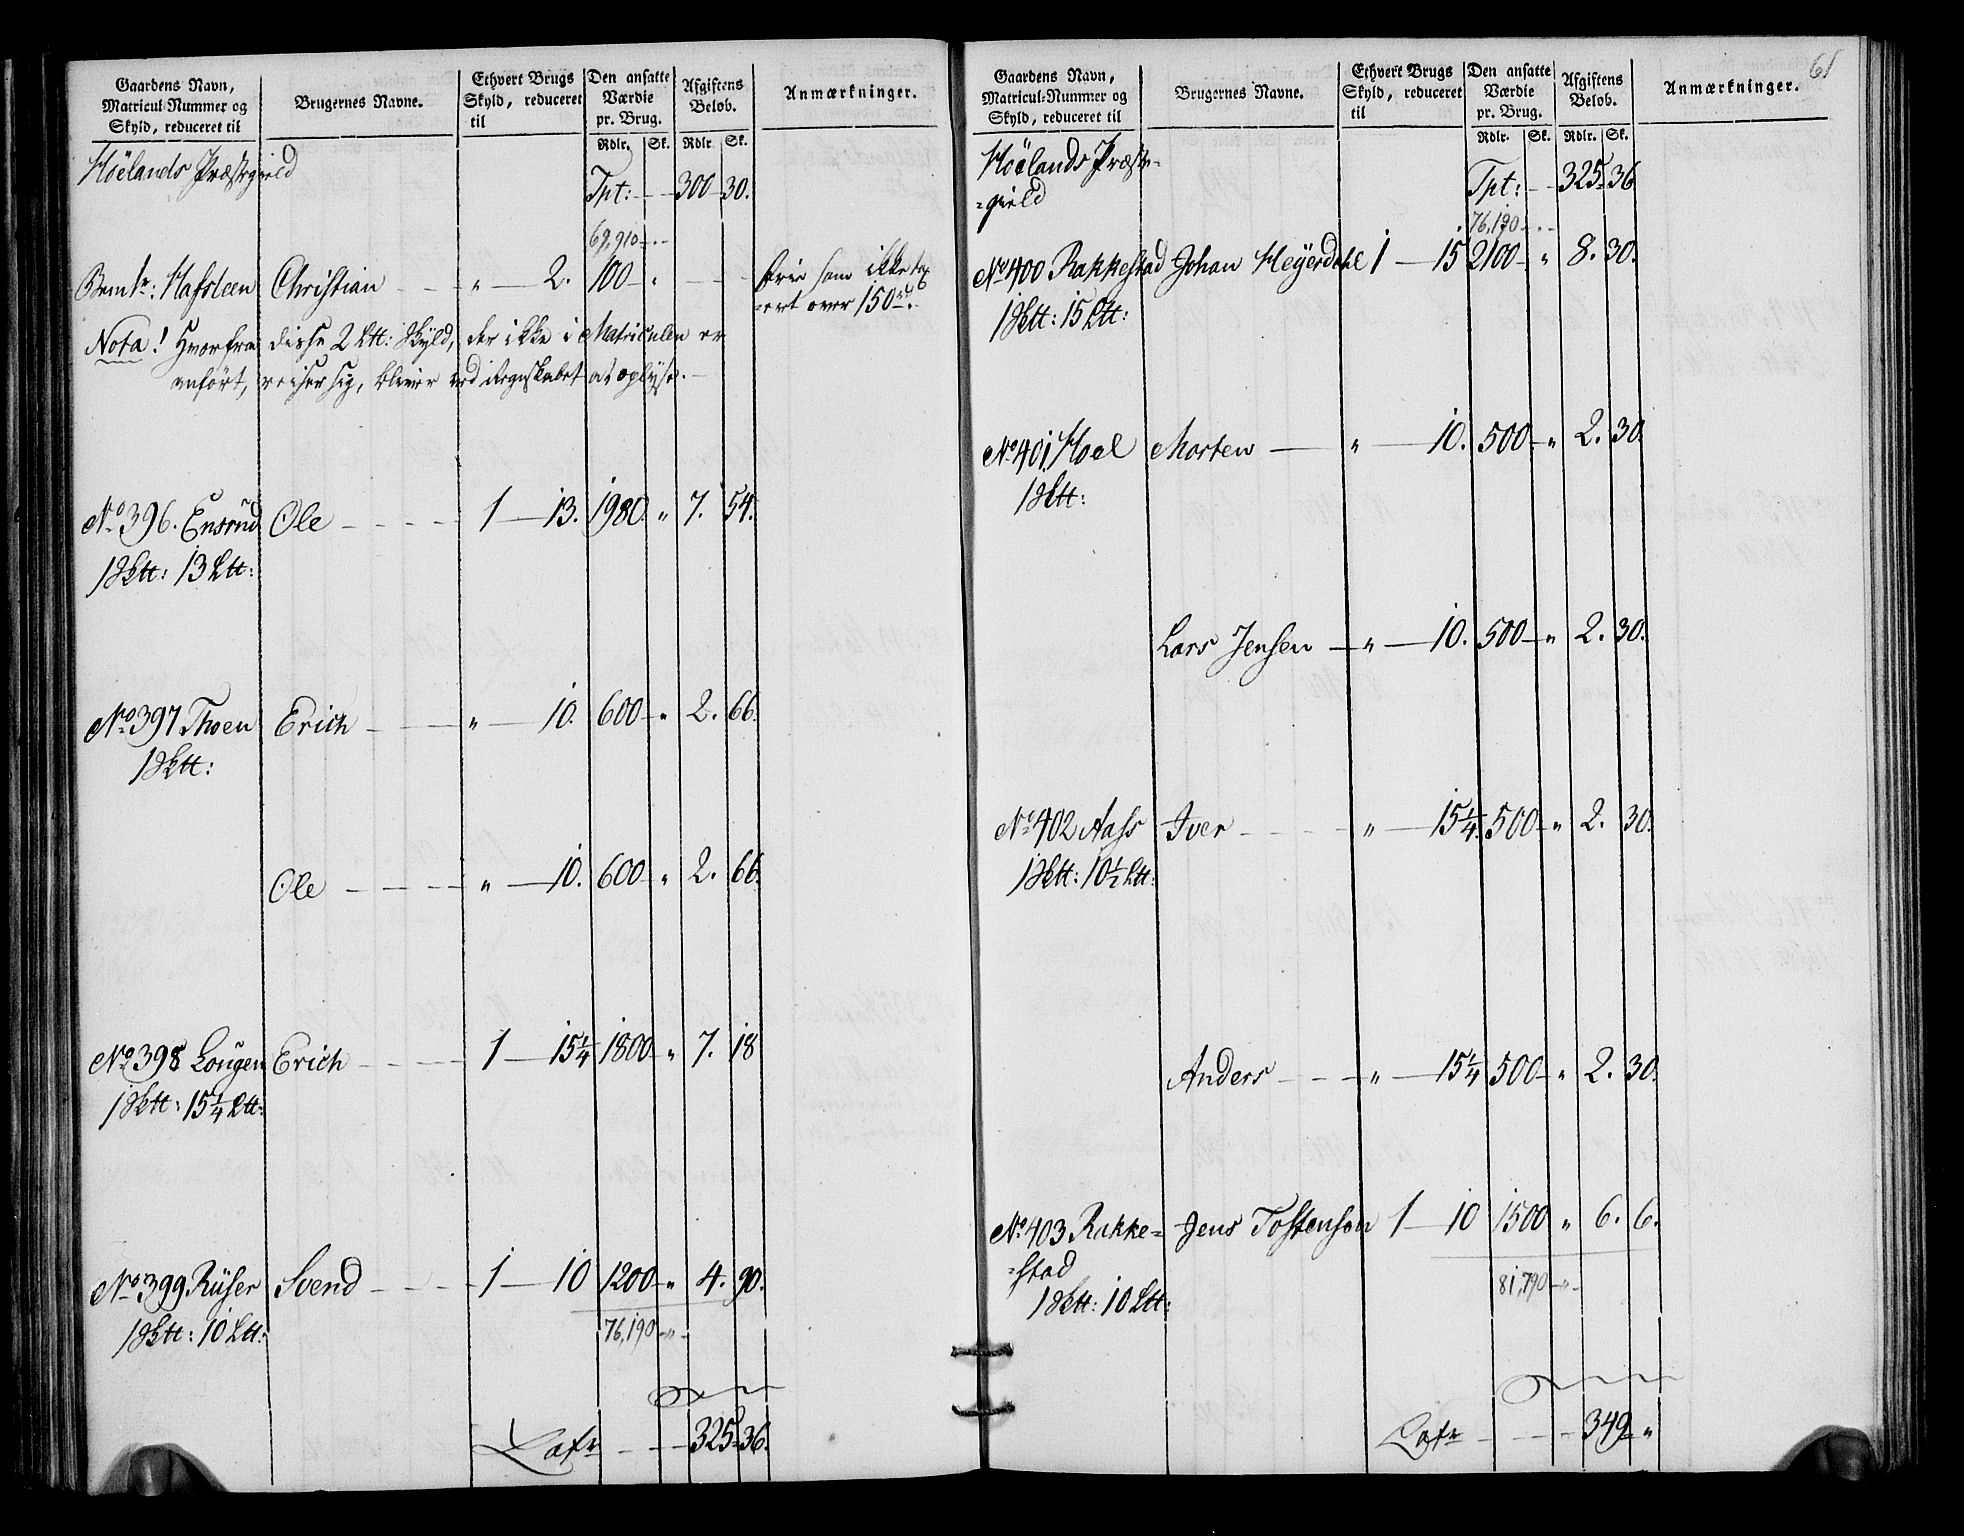 Gaardens Navn, Matricul-Nummer og Skyld, reduceret til | Brugernes Navne. | Ethvert Brugs Skyld, reduceret til | Den ansatte Værdie pr. Brug. Rdlr. Sk. | Afgiftens Beløb. Rdlr. Sk. | Anmærkninger.
Höelands Præstegield
Tpt: - - 300 - 30.
69,910 - -
Bem: Hafsteen Christian - - - " - 2. 100 - " - - frie som ikke tax-
ert over 150 rd.
Nota! Hvorfra disse 2 Ltt: Skyld, der ikke i Matriculen er
anført, reiser sig, bliver ved Regnskabet at oplyse. -
No 396. Ensrud Ole - - - - 1 - 13. 1980. " 7. 54.
1 Sktt: 13 Ltt:
No 397 Thoen Erich - - - " - 10. 600 - " 2. 66.
1 Sktt:
Ole - - - - " - 10. 600 - " 2. 66.
No 398 Lougen Erich - - - - 1 - 15¼ 1800 - " 7. 18
1 Sktt: 15¼ Ltt:
No 399 Rüser Svend - - - - 1 - 10 1200 - " 4. 90.
1 Sktt: 10 Ltt:
76,190 - " -
Lafr - - - 325 - 36.
61
Gaardens Navn, Matricul-Nummer og Skyld, reduceret til | Brugernes Navne. | Ethvert Brugs Skyld, reduceret til | Den ansatte Værdie pr. Brug. Rdlr. Sk. | Afgiftens Beløb. Rdlr. Sk. | Anmærkninger.
Höelands Præste-
-gield
Tpt: - - 325 - 36
76,190 - -
No 400 Rakkestad Johan Heyerdahl 1 - 15 2100 - " 8. 30.
1 Sktt: 15 Ltt:
No 401 Hoel Morten - " - 10. 500 - " 2. 30.
1 Sktt:
Lars Jensen - " - 10. 500 - " 2. 30.
No 402 Aass Iver - - - - " - 15¼. 500 - " 2. 30.
1 Sktt: 10½ Ltt:
Anders - - - " - 15¼ 500 - " 2. 30.
No 403 Rakke- Jens Tostensen 1 - 10 1500 " 6. 6.
-stad
1 Sktt: 10 Ltt:
81,790 - " -
Lafr - - - - 349 - "